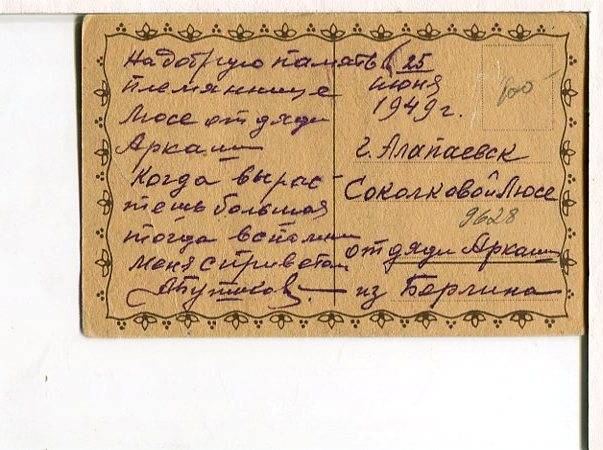 На добрую память
племяннице
Люсе от дяди
Аркаши
Когда вырас
тешь большая
тогда вспомни
меня с приветом
25
июня
1949 г.
г. Алапаевск
Соколковой Люсе
9628
от дяди Аркаши
из Берлина